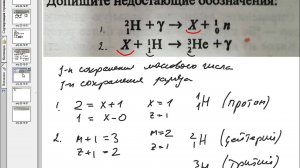 Допишите недостающие обозначения:
1. ²₁H + γ → X + ¹₀n
2. X + ¹₁H → ³₂He + γ
з-н сохранения массового числа
з-н сохранения заряда
1. 2 = x + 1 x = 1 ¹₁H (протон)
1 = x - 0 z = 1
2. m + 1 = 3 m = 2 ²₁H (дейтерий)
z + 1 = 2 z = 1
³₁H (тритий)